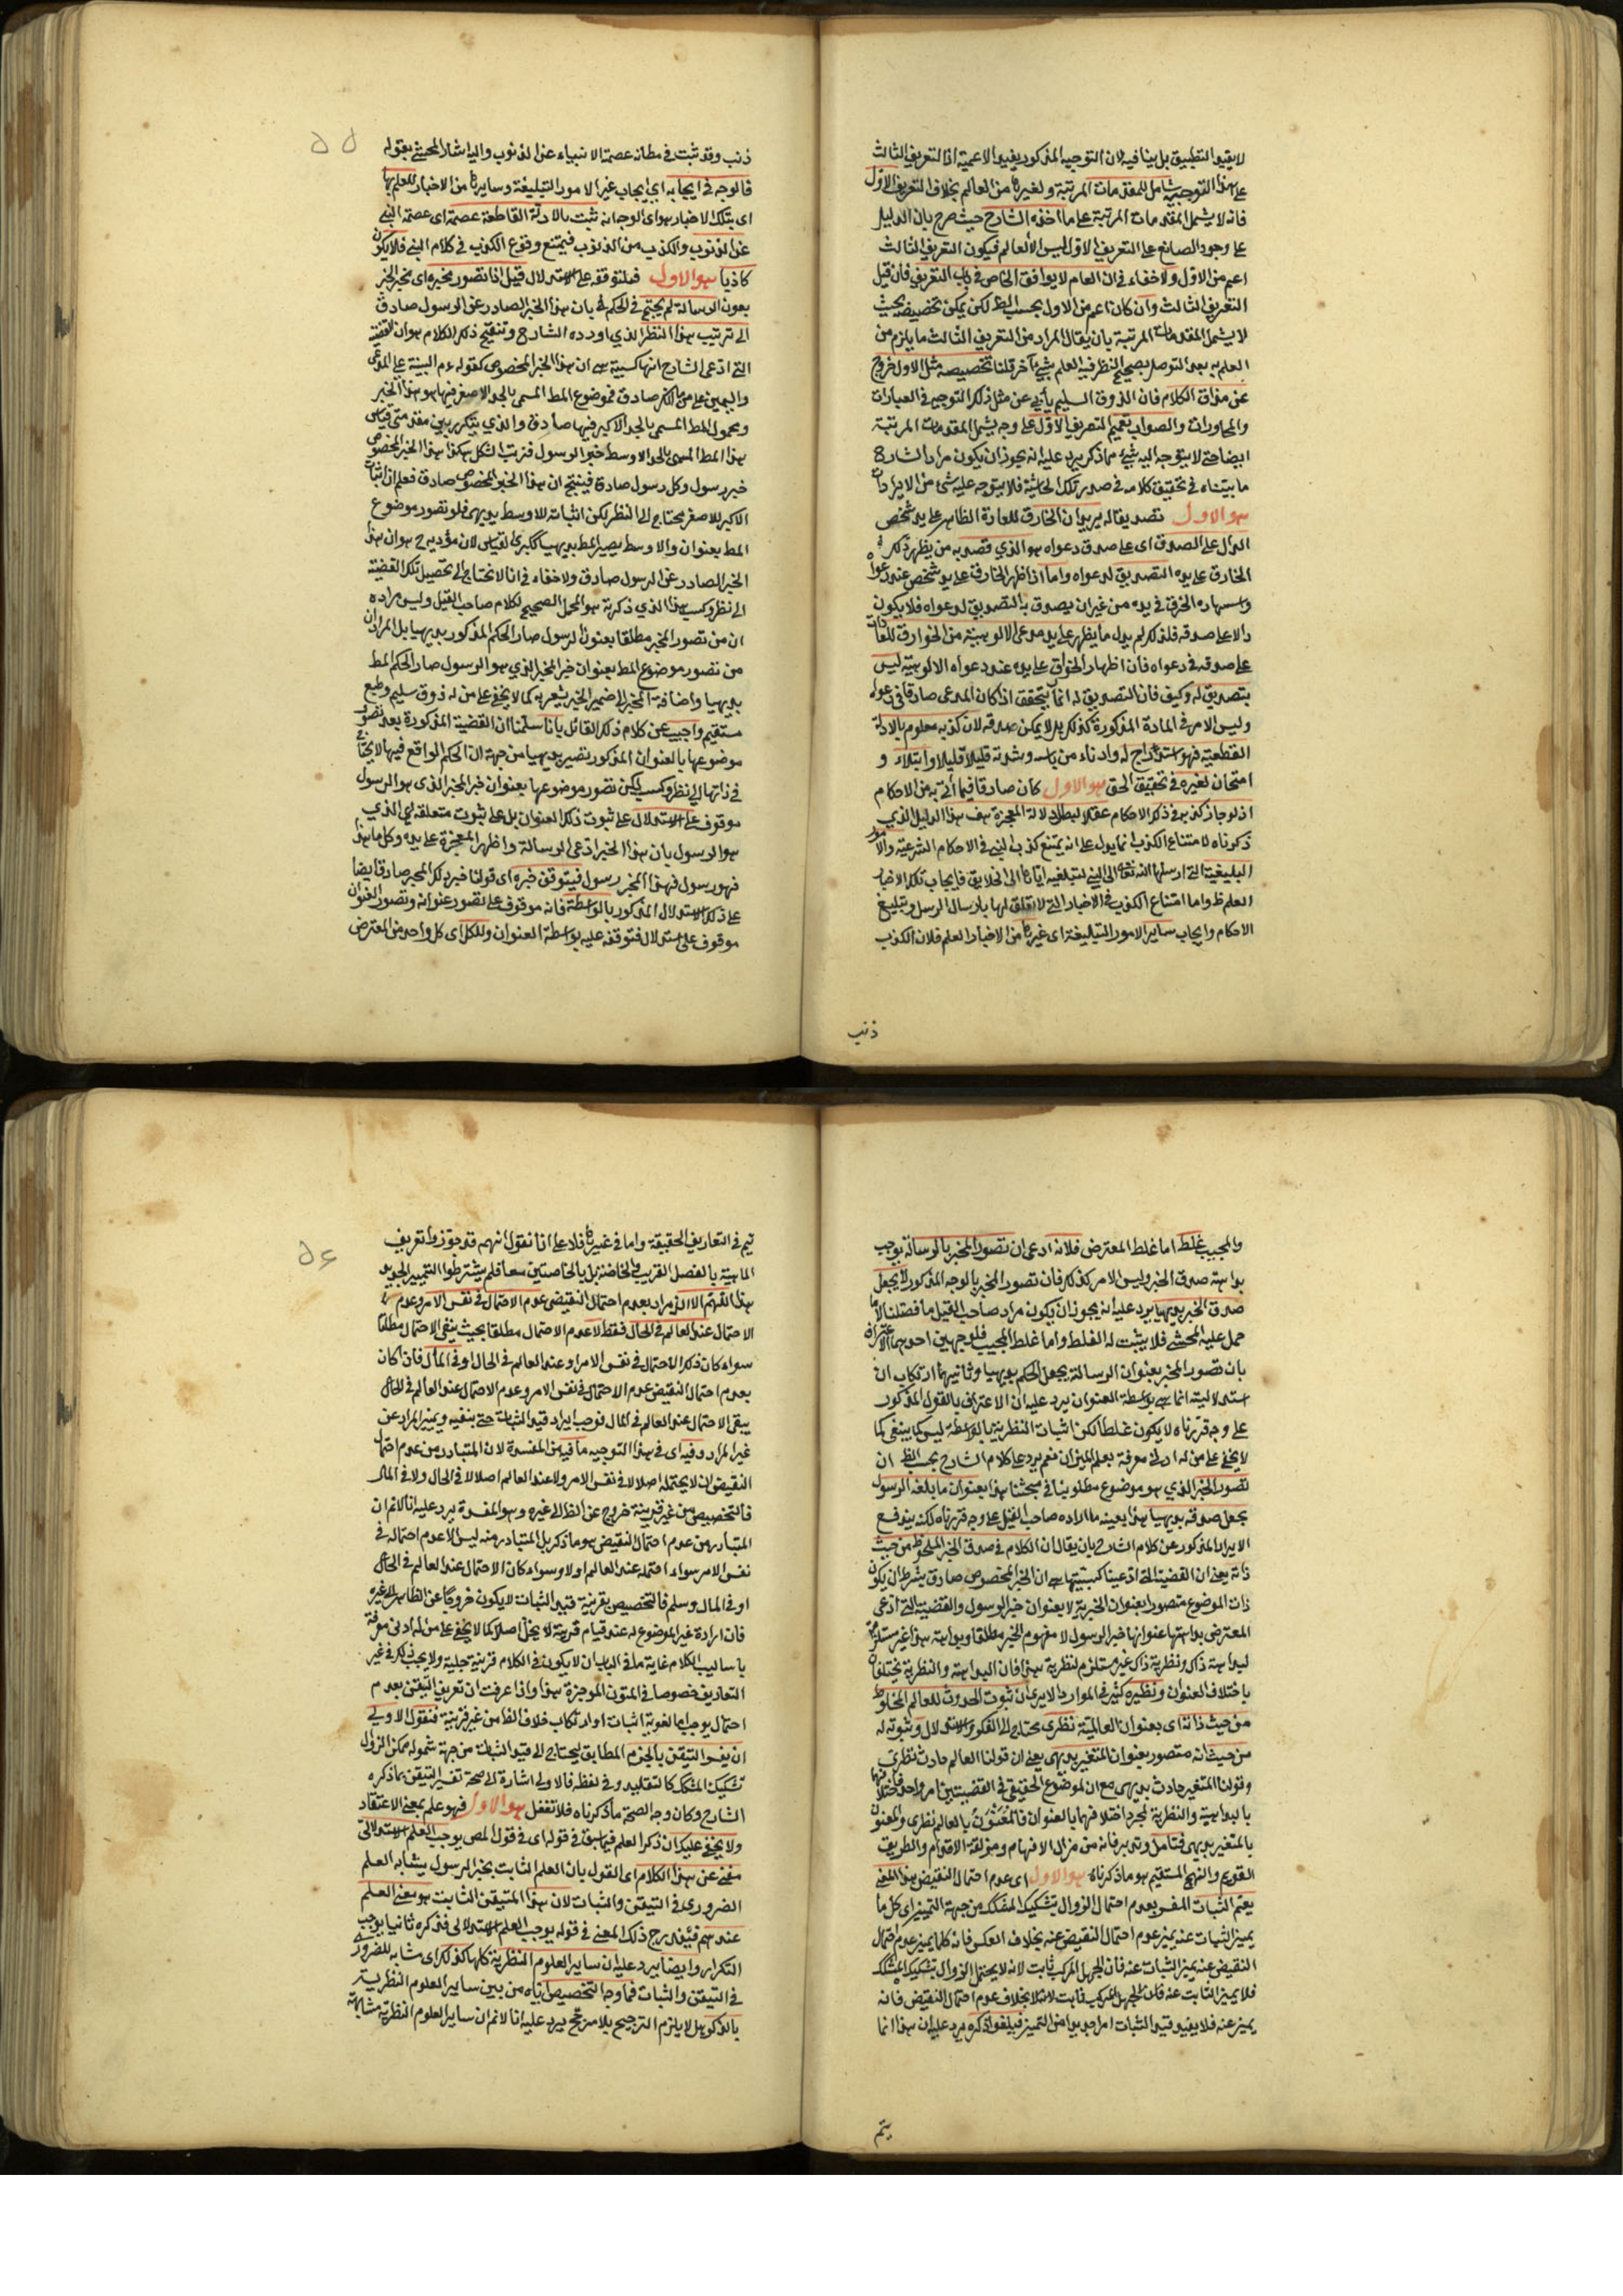 لا يفيد التطبيق بل ينافيه لان التوجيه المذكور يفيد الاعمية اذ التعريف الثالث
على هذا التوجيه شامل للمقدمات المرتبة ولغيرها من العالم بخلاف التعريف الاول
فانه لا يشمل المقدمات المرتبة على ما اخذه الشارح حيث صرح بان الدليل
على وجود الصانع على التعريف الاول ليس الا العالم فيكون التعريف الثالث
اعم من الاول ولا خفاء في ان العام لا يوافق الخاص في باب التعريف فان قيل
التعريف الثالث وان كان اعم من الاول بحسب الظ لكن يمكن تخصيصه بحيث
لا يشمل المقدمات المرتبة بان يقال المراد من التعريف الثالث ما يلزم من
العلم به بعد التوصل بصحيح النظر فيه العلم بشيء آخر قلنا تخصيصه مثل الاول خروج
عن مذاق الكلام فان الذوق السليم يأبي عن مثل ذلك التوجيه في العبارات
والمحاورات والصواب تعميم التعريف الاول على وجه يشمل المقدمات المرتبة
ايضا حتى لا يتوجه اليه شيء مما ذكر يرد عليه انه يجوز ان يكون مراد الشارح
ما بيناه في تحقيق كلامه في صدر تلك الحاشية فلا يتوجه عليه شئ من الايرادات
هو الاول تصديقا له يريد ان الخارق للعادة الظاهر على يد شخص
الدال على الصدق اي على صدق دعواه هو الذي قصد به من يظهر ذلك
الخارق على يده التصديق لدعواه واما اذا ظهر الخارق على يد شخص عند دعواه
من غير ان يصدق بالتصديق لدعواه فلا يكون
دالا على صدقه فلذلك لم يدل ما يظهر على يد مدعى الالوهية من الخوارق للعادات
على صدقه في دعواه فان اظهار الخوارق على يده عند دعواه الالوهية ليس
بتصديق له وكيف فان التصديق له انما يتحقق اذا كان المدعى صادقا في دعواه
وليس الامر في المادة المذكورة كذلك بل لا يمكن صدقه لان كذبه معلوم بالادلة
القطعية فهو استدراج له وادناء من باسه وشدته قليلا قليلا وابتلاء و
امتحان لغيره في تحقيق الحق هو الاول كان صادقا فيما أتى به من الاحكام
اذ لو جاز كذبه في ذكر الاحكام عقلا لبطل دلالة المعجزة هف هذا الدليل الذي
ذكرناه لامتناع الكذب انما يدل على انه يمتنع كذب النبي في الاحكام الشرعية والامور
التبليغية التي ارسلها الله تعالى الى النبي لتبليغه اياها الى الخلايق فايجاب تلك الاخبار
العلم ظ واما امتناع الكذب في الاخبار التي لا تعلق لها بارسال الرسل وتبليغ
الاحكام وايجاب ساير الامور التبليغية اي غيرها من الاخبار العلم فلان الكذب
ذنب
ذنب وقد ثبت في مظانه عصمة الانبياء عن الذنوب والى هذا اشار المحشي بقوله
فالوجه في ايجابه اي ايجاب غير الامور التبليغية وسايرها من الاخبار للعلم بها
اي بتلك الاخبار هو اي الوجه انه ثبت بالادلة القاطعة عصمته اي عصمة النبي
عن الذنوب والكذب من الذنوب فيمتنع وقوع الكذب في كلام النبي فلا يكون
كاذبا هو الاول فلتوقفه على الاستدلال قيل اذا تصور مخبره اي مخبر الخبر
بعنوان الرسالة لم يحتج في الحكم في بان هذا الخبر الصادر عن الرسول صادق
الى ترتيب هذا النظر الذي اورده الشارح وتنقيح ذلك الكلام هو ان القضية
التي ادعى الشارح انها كسبية هي ان هذا الخبر المخصوص كقوله ءم البينة على المدعى
واليمين على من انكر صادق فموضوع المط المسمى بالحد الاصغر فيها هو هذا الخبر
ومحمول المط المسمى بالحد الاكبر فيها صادق والذي يتكرر بين مقدمتي قياس
هذا المط المسمى بالحد الاوسط خبر الرسول فترتب الشكل هكذا هذا الخبر المخصوص
خبر رسول وكل رسول صادق فينتج ان هذا الخبر المخصوص صادق فعلم ان اثبات
الاكبر للاصغر محتاج الى النظر لكن اثباته للاوسط بديهي فلو تصور موضوع
المط بعنوان والاوسط يصير المط بديهيا ككبرى القياس لان مؤديه ح هو ان هذا
الخبر الصادر عن الرسول صادق ولا خفاء في انا لا نحتاج الى تحصيل تلك القضية
الى نظر وكسب هذا الذي ذكرته هو المحمل الصحيح لكلام صاحب القيل وليس مراده
ان من تصور المخبر مطلقا بعنوان الرسول صار الحكم المذكور بديهيا بل المراد ان
من تصور موضوع المط بعنوان خبر المخبر الذي هو الرسول صار الحكم المط
بديهيا واضافة المخبر الى ضمير الخبر يشعر به كما لا يخفى على من له ذوق سليم وطبع
مستقيم واجيب عن كلام ذلك القائل بانا سلمنا ان القضية المذكورة بعد تصور
موضوعها بالعنوان المذكور تصير بديهيا من جهة ان الحكم الواقع فيها لا يحتاج
في ذاتها الى نظر وكسب لكن تصور موضوعها بعنوان خبر المخبر الذي هو الرسول
موقوف على الاستدلال على ثبوت ذلك العنوان بل على ثبوت متعلقه الذي
هو الرسول بان هذا المخبر ادعى الرسالة واظهر المعجزة على يده وكل ما هذا
فهو رسول فهذا المخبر رسول فيتوقف خبره اي قولنا خبر ذلك المخبر صادق ايضا
على ذلك الاستدلال المذكور بالواسطة فانه موقوف على تصور عنوانه وتصور العنوان
موقوف على استدلال فتوقفه عليه بواسطة العنوان وللكل اي كل واحد من المعترض
والمجيب غلط اما غلط المعترض فلانه ادعى ان تصور المخبر بالرسالة يوجب
بداهته صدق الخبر وليس الامر كذلك فان تصور المخبر بالوجه المذكور لا يجعل
صدق الخبر بديهيا يرد عليه انه يجوز ان يكون مراد صاحب القيل ما فصلنا لا ما
حمل عليه المحشي فلا يثبت له الغلط واما غلط المجيب فلوجهين احدهما اعترافه
بان تصور المخبر بعنوان الرسالة يجعل الحكم بديهيا وثانيهما ارتكاب ان
استدلاليته انما هي بواسطة العنوان يرد عليه ان الاعتراف بالقول المذكور
على وجه قررناه لا يكون غلطا لكن اثبات النظرية بالواسطة ليس كما ينبغي كما
لا يخفى على من له ادنى معرفة بعلم الميزان نعم يرد على كلام الشارح بحسب الظ ان
تصور الخبر الذي هو موضوع مطلوبنا في مبحثنا هذا بعنوان ما بلغه الرسول
يجعل صدقه بديهيا هذا بعينه ما اراده صاحب القيل على وجه قررناه لكنه يندفع
الايراد المذكور عن كلام الشارح بان يقال ان الكلام في صدق الخبر الملحوظ من حيث
ذاته يعني ان القضية التي ادعينا كسبيتها هي ان الخبر المخصوص صادق بشرط ان يكون
ذات الموضوع متصورا بعنوان الخبرية لا بعنوان خبر الرسول والقضية التي ادعى
المعترض بداهتها عنوانها خبر الرسول لا مفهوم الخبر مطلقا وبداهته هذا غير مستلزمة
لبداهة ذاك ونظرية ذاك غير مستلزم لنظرية هذا فان البداهة والنظرية يختلفان
باختلاف العنوان ونظيره كثير في الموارد الا يرى ان ثبوت الحدوث للعالم الملحوظ
من حيث ذاته اي بعنوان العالمية نظري محتاج الى الفكر والاستدلال وثبوته له
من حيث انه متصور بعنوان المتغير بديهي يعني ان قولنا العالم حادث نظري
وقولنا المتغير حادث بديهي مع ان الموضوع الحقيقي في القضيتين امر واحد فاختلافهما
بالبداهية والنظرية لمجرد اختلافهما بالعنوان فالمعنون بالعالم نظري والمعنون
بالمتغير بديهي فتامل وتدبر فانه من مزال الافهام ومزلقة الاقدام والطريق
القويم والنهج المستقيم هو ما ذكرناه هو الاول اي عدم احتمال النقيض هذا المعنى
يعم الثبات المفسر بعدم احتمال الزوال بتشكيك المشكك من جهة التمييز اي كل ما
يميز الثبات عنه يميز عدم احتمال النقيض عنه بخلاف العكس فانه كلما يميز عدم احتمال
النقيض عنه يميز الثبات عنه فان الجهل المركب ثابت لانه لا يحتمل الزوال بتشكيك المشكك
فلا يميز الثابت عنه فان الجهل المركب ثابت لا بخلاف عدم احتمال النقيض فانه
يميز عنه فلا يفيد قيد الثبات امرا جديدا من التمييز فيلغو ذكره يرد عليه ان هذا انما
يتم
يتم في التعاريف الحقيقية واما في غيرها فلا على انا نقول انهم قد جوزوا تعريف
الماهية بالفصل القريب والخاصة بل بالخاصتين معا فلم يشترطوا التمييز الجديد
هذا اللهم الا ان يراد بعدم احتمال النقيض عدم الاحتمال في نفس الامر وعدم
الاحتمال عند العالم في الحال فقط لا عدم الاحتمال مطلقا بحيث ينفى الاحتمال مطلقا
سواء كان ذلك الاحتمال في نفس الامر او عند العالم في الحال او في المآل فان كان
بعدم احتمال النقيض عدم الاحتمال في نفس الامر وعدم الاحتمال عند العالم في الحال
يبقى الاحتمال عند العالم في المآل فوجب ايراد قيد الثبات حتى ينفيه ويميز المراد عن
غير المراد وفيه اي في هذا التوجيه ما فيه من المفسدة لان المتبادر من عدم احتمال
النقيض ان لا يحتمله اصلا لا في نفس الامر ولا عند العالم اصلا لا في الحال ولا في المآل
فالتخصيص من غير قرينة خروج عن الظ الى غيره وهو المفسدة يرد عليه انا لا نم ان
المتبادر من عدم احتمال النقيض هو ما ذكر بل المتبادر منه ليس الا عدم احتماله في
نفس الامر سواء احتمله عند العالم او لا وسواء كان الاحتمال عند العالم في الحال
او في المآل وسلم فالتخصيص بقرينة قيد الثبات لا يكون خروجا عن الظاهر الى غيره
فان ارادة غير الموضوع له عند قيام قرينة لا يخل اصلا كما لا يخفى على من له ادنى معرفة
باساليب الكلام غاية ما في الباب ان لا يكون في الكلام قرينة جلية ولا يجب ذلك في غير
التعاريف خصوصا في المتون الموجزة هذا واذا عرفت ان تعريف التيقن بعدم
احتمال يوجب اما لغوية اثبات او ارتكاب خلاف الظ من غير قرينة فنقول الاولى
ان يفسر التيقن بالجزم المطابق ليحتاج الى قيد الثبات من جهة شموله ممكن الزوال
بتشكيك المشكك كالتقليد وفي لفظه فالاولى اشارة الى صحة تفسير التيقن بما ذكره
الشارح وكان وجه الصحة ما ذكرناه فلا تغفل هو الاول فهو علم بمعنى الاعتقاد
ولا يخفى عليك ان ذكر العلم فيما سبق في قوله اي في قول المص يوجب العلم الاستدلالي
مغني عن هذا الكلام اي القول بان العلم الثابت بخبر الرسول يشابه العلم
الضروري في التيقن والثبات لان هذا المتيقن الثابت هو معنى العلم
عندهم فيندرج ذلك المعنى في قوله يوجب العلم الاستدلالي فذكره ثانيا يوجب
التكرار وايضا يرد عليه ان ساير العلوم النظرية كلها كذلك اي مشابه للضروري
في التيقن والثبات فما وجه التخصيص اياه من بين ساير العلوم النظرية
بالذكر هل لا يلزم الترجيح بلا مرجح يرد عليه انا لا نم ان ساير العلوم النظرية مشابهة